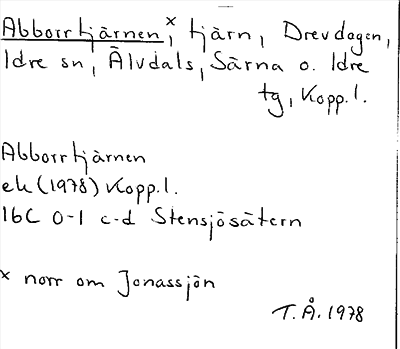 Abborrtjärnen,ˣ tjärn, Drevdagen,
Idre sn, Älvdals, Särna o. Idre
tg, Kopp.l.
Abborrtjärnen
ek (1978) Kopp.l.
16C 0-1 c-d Stensjösätern
ˣ norr om Jonassjön
T.Å. 1978